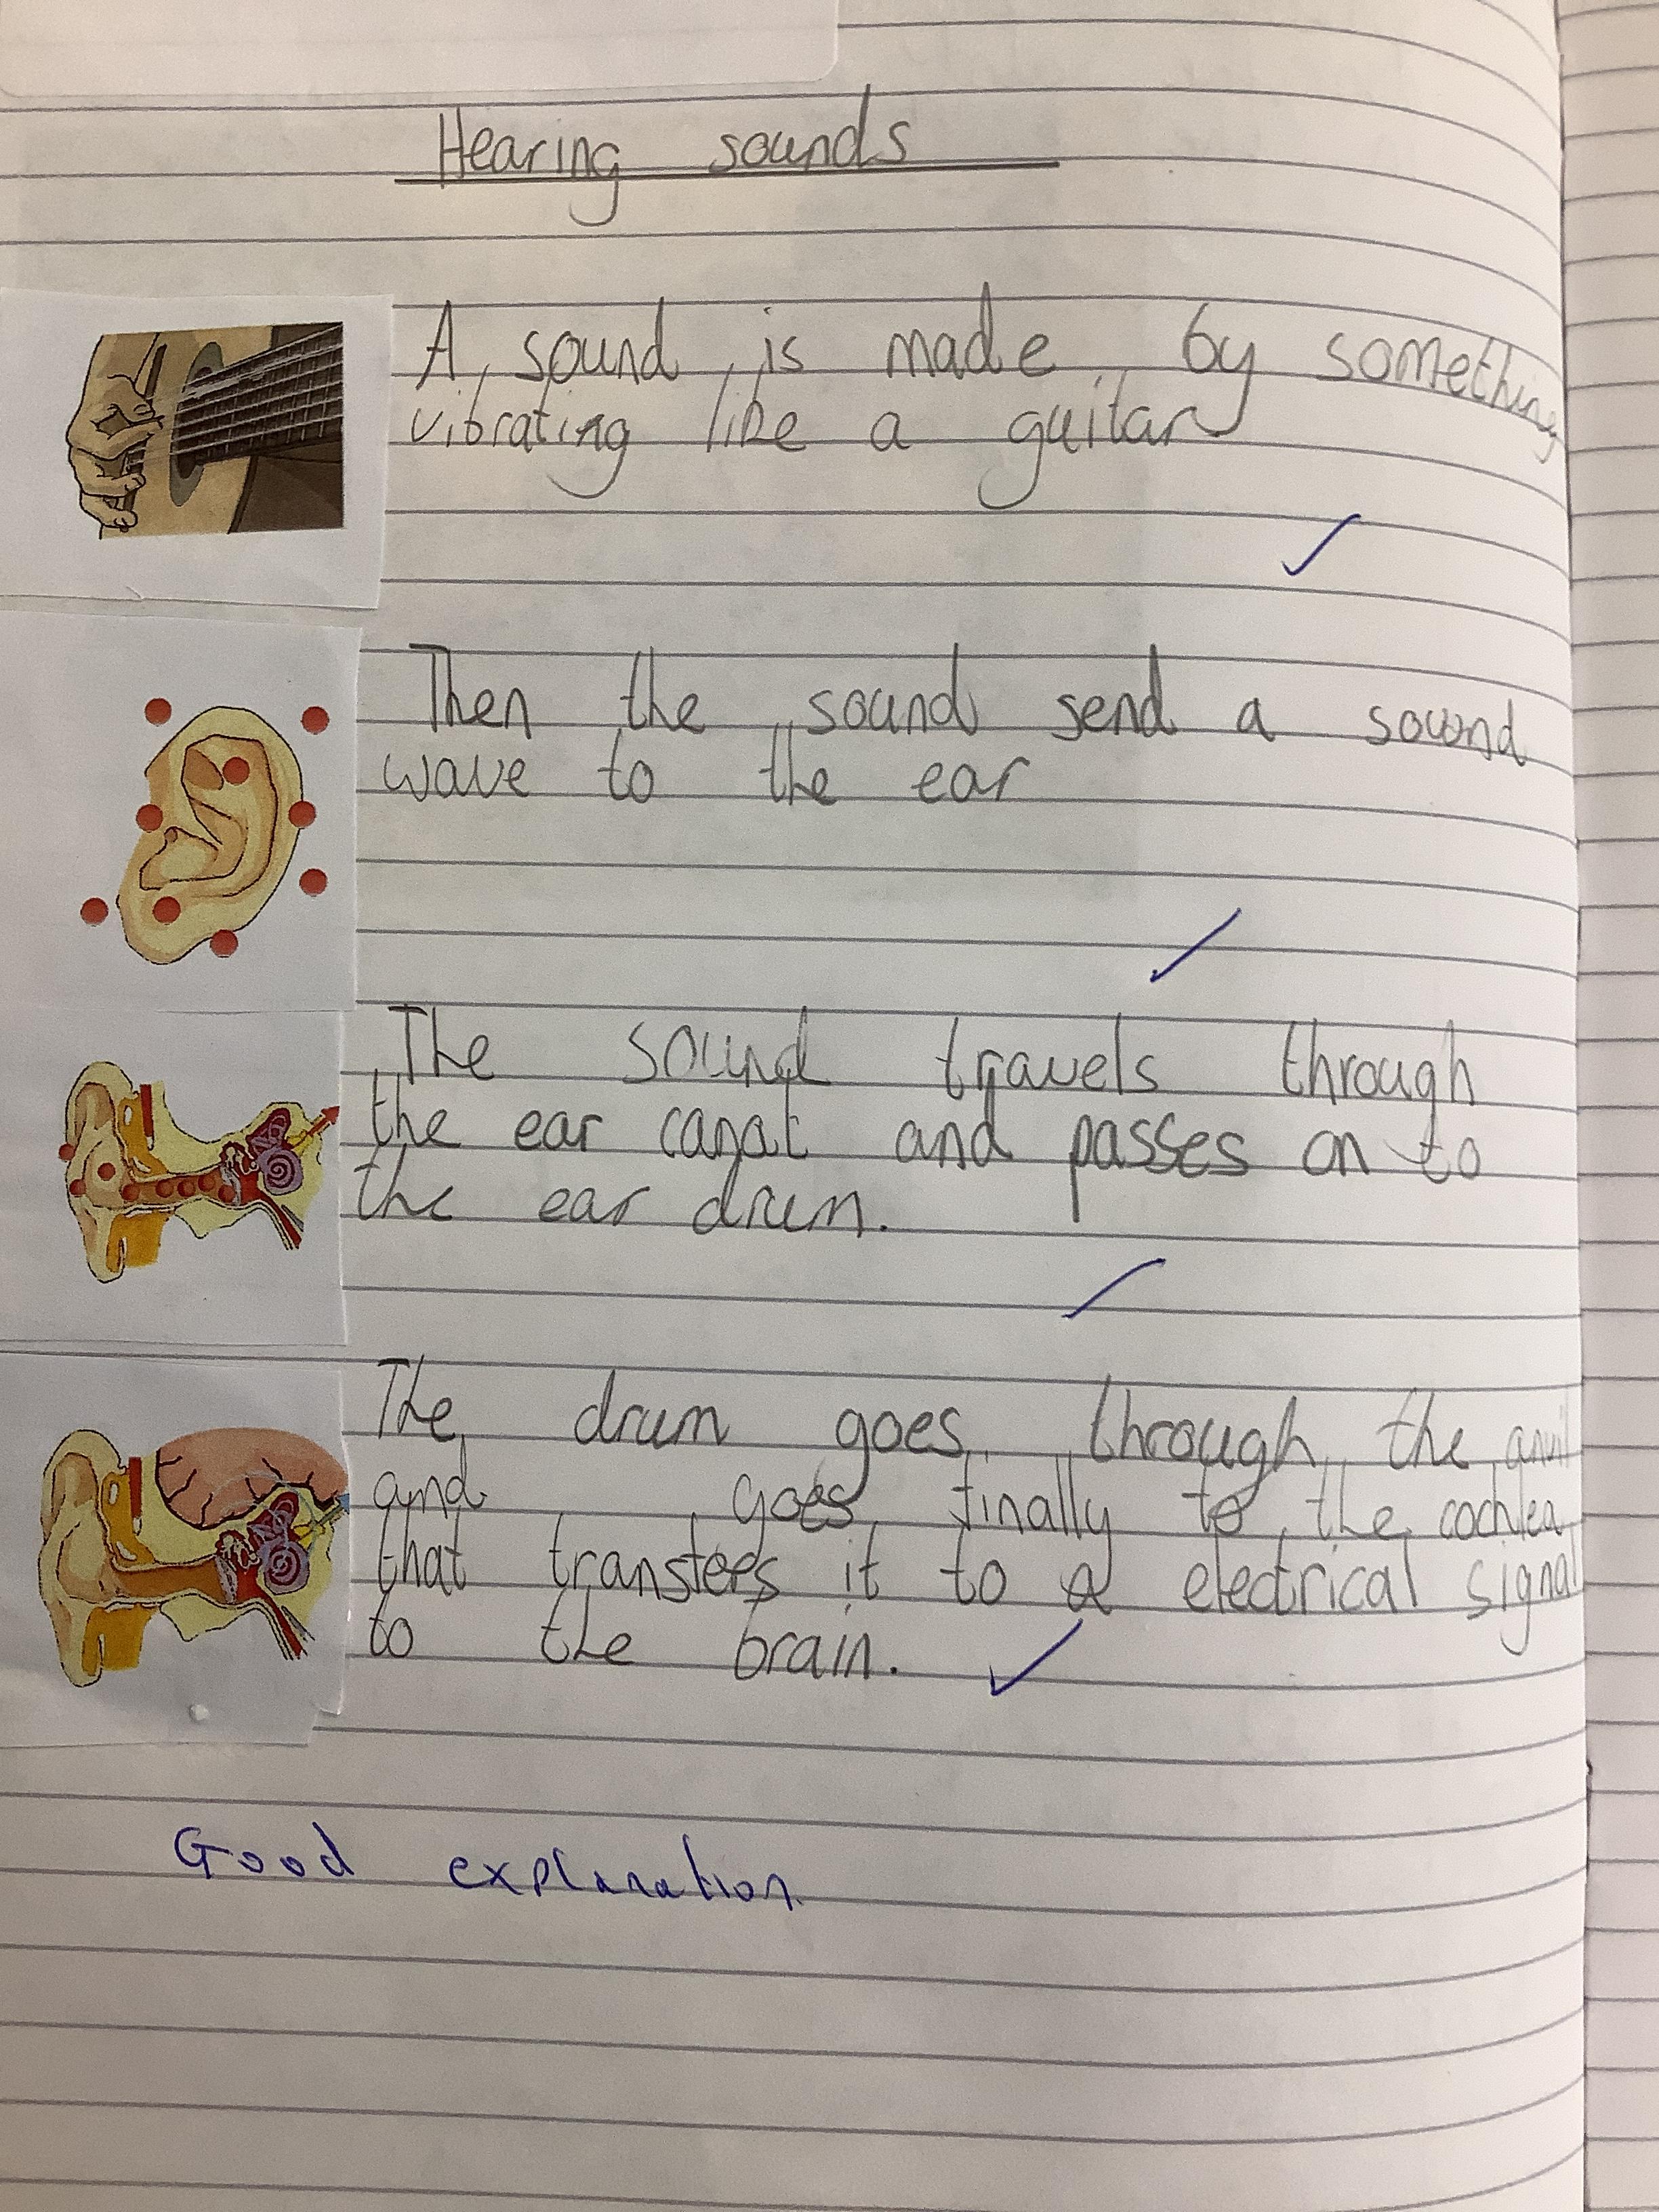 Hearing sounds
A sound is made by something
vibrating like a guitar
Then the sound send a sound
wave to the ear
The sound travels through
the ear canal and passes on to
the ear drum.
The drum goes through the anvil
and goes finally to the cochlea
that transfers it to a electrical signal
to the brain.
Good explanation